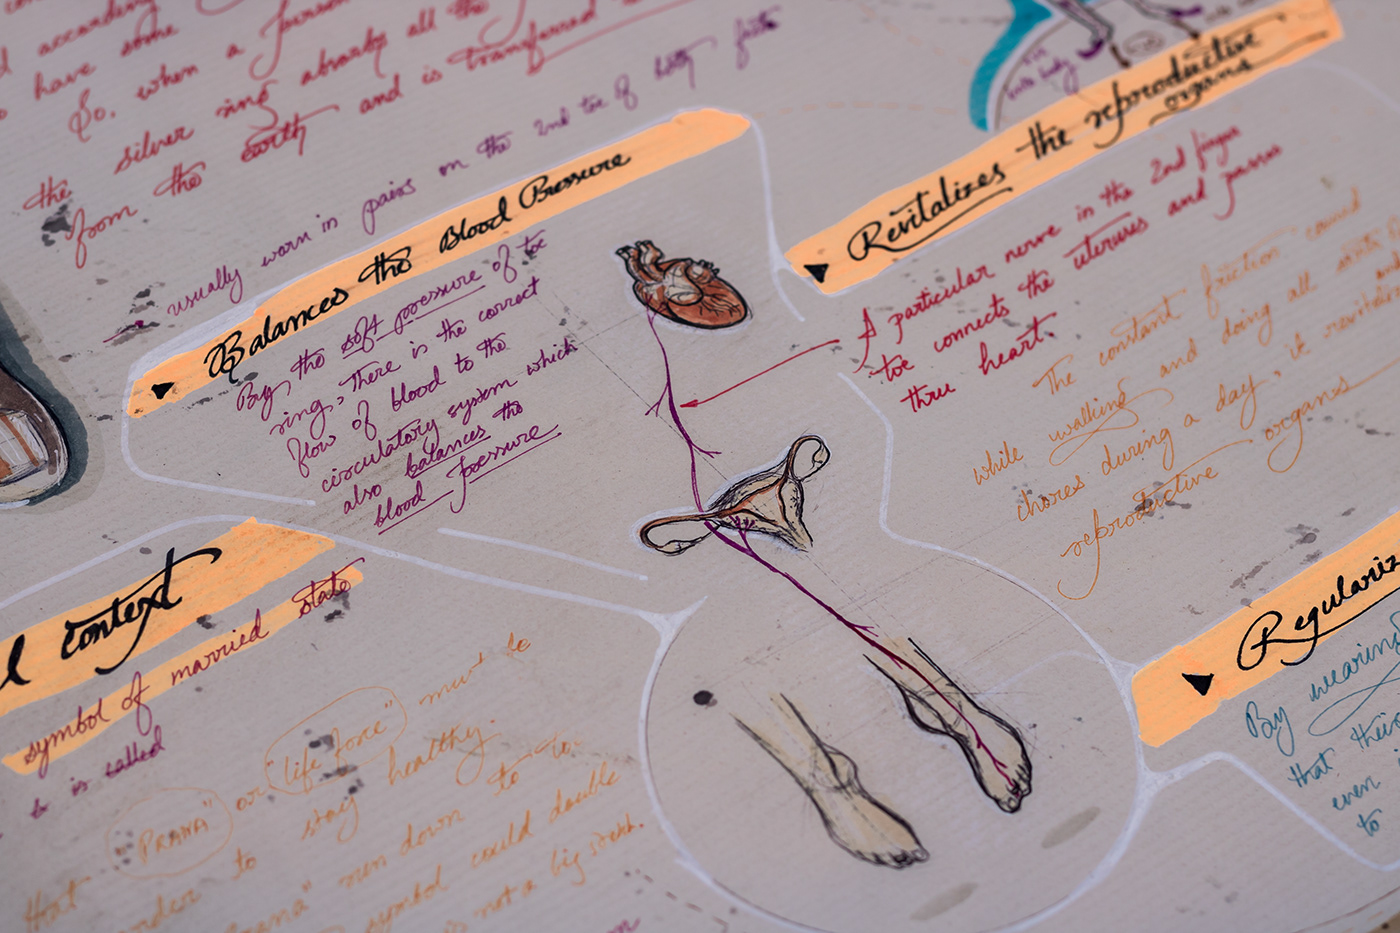 have some
So, when a
the silver ring absorbs all the
from the earth and is transferred
usually worn in pairs on the 2nd toe of both feets
Balances the Blood Pressure
By the soft pressure of toe
ring, There is the correct
flow of blood to the
circulatory system which
also balances the
blood pressure
Revitalizes the reproductive
organs
A particular nerve in the 2nd finger
toe connects the uterures and passes
thru heart.
The constant friction caused
while walking and doing all
chores during a day, it revitalizes
reproductive organs
context
symbol of married state
is called
"PRANA" or "life force" must be
that order to stay healthy.
run down to to
symbol could double
is not a big stretch.
Regulariz
By wearing
that their
even
to